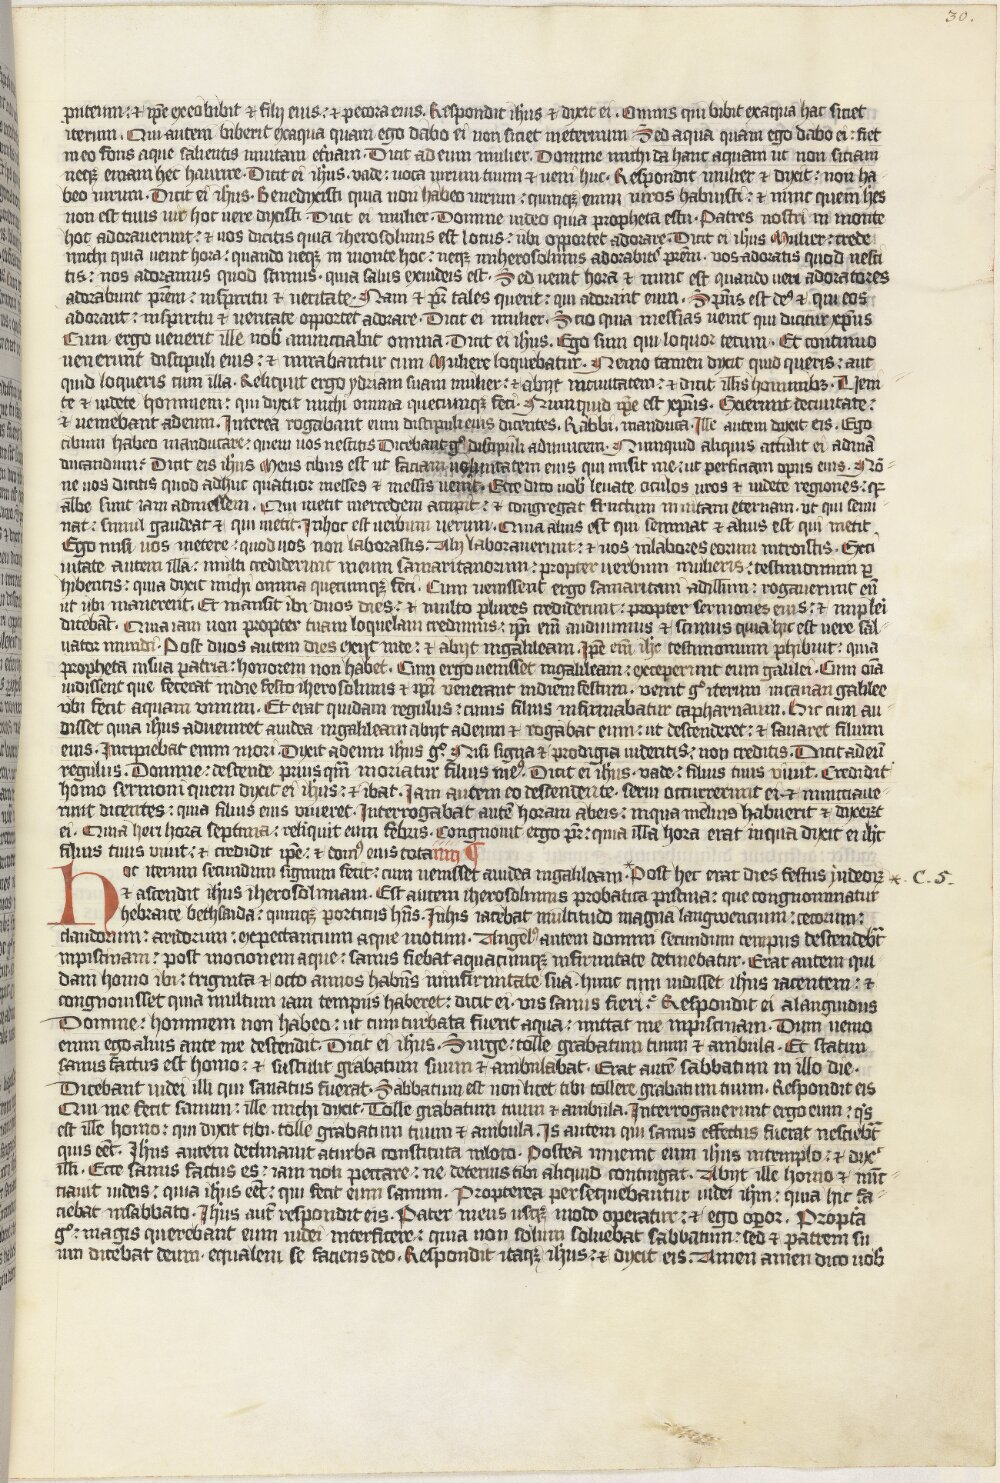 30.
puteum : ⁊ ip̄e ex eo bibit ⁊ filij eius : ⁊ pecora eius. Respondit ih̄us ⁊ dixit ei. Omnis qui bibit ex aqua hac siciet
iterum. Qui autem biberit ex aqua quam ego dabo ei non siciet in eternum. Sed aqua quam ego dabo ei : fiet
in eo fons aque salientis in uitam et̄nam. Dicit ad eum mulier. Domine michi da hanc aquam ut non siciam
neqꝫ ueniam huc haurire. Dicit ei ih̄us. vade : uoca uirum tuum ⁊ veni huc. Respondit mulier ⁊ dixit : non ha
beo uirum. Dicit ei ih̄us. Benedixisti quia non habeo uirum : quinqꝫ enim uiros habuisti : ⁊ nunc quem h̄es
non est tuus uir hoc uere dixisti. Dicit ei mulier. Domine uideo quia propheta es tu. Patres nostri in monte
hoc adorauerunt : ⁊ uos dicitis quia iherosolimis est locus : ubi opportet adorare. Dicit ei ih̄us Mulier : crede
michi quia uenit hora : quando neqꝫ in monte hoc : neqꝫ in iherosolimis adorabitis prēm. vos adoratis quod nesci
tis : nos adoramus quod scimus. quia salus ex iudeis est. Sed uenit hora ⁊ nunc est quando ueri adoratores
adorabunt prēm : in spiritu ⁊ ueritate. Nam ⁊ pr̄ tales querit : qui adorant eum. Sp̄us est deꝰ ⁊ qui eos
adorant : in spiritu ⁊ ueritate opportet adorare. Dicit ei mulier. Scio quia messias uenit qui dicitur xp̄us
Cum ergo uenerit ille nob̄ annunciabit omnia. Dicit ei ih̄us. Ego sum qui loquor tecum. Et continuo
uenerunt discipuli eius : ⁊ mirabantur cum Muliere loquebatur. Nemo tamen dixit quid queris : aut
quid loqueris cum illa. Reliquit ergo ydriam suam mulier : ⁊ abijt in ciuitatem : ⁊ dicit illis hominibꝫ. Veni
te ⁊ uidete hominem : qui dixit michi omnia quecumqꝫ feci. Numquid ip̄e est xp̄us. Exierunt de ciuitate :
⁊ ueniebant ad eum. Interea rogabant eum discipuli eius dicentes. Rabbi. manduca. Ille autem dixit eis. Ego
cibum habeo manducare : quem uos nescitis Dicebant gͦ discipuli adinuicem. Numquid aliquis attulit ei ad man
ducandum : Dicit eis ih̄us Meus cibus est ut faciam uoluntatem eius qui misit me : ut perficiam opus eius. Nō
ne uos dicitis quod adhuc quatuor menses ⁊ messis uenit. Ecce dico uob̄ leuate oculos uros ⁊ uidete regiones : qꝛ
albe sunt iam ad messem. Qui metit mercedem accipit : ⁊ congregat fructum in uitam eternam. ut qui semi
nat : simul gaudeat ⁊ qui metit. In hoc est uerbum uerum. Quia alius est qui seminat ⁊ alius est qui metit
Ego misi uos metere : quod uos non laborastis. Alij laborauerunt : ⁊ uos in labores eorum introistis. Ex ci
uitate autem illa : multi crediderunt in eum samaritanorum : propter uerbum mulieris : testimonium ꝑ
hibentis : quia dixit michi omnia quecumqꝫ feci. Cum uenissent ergo samaritani ad illum : rogauerunt eū
ut ibi maneret. Et mansit ibi duos dies : ⁊ multo plures crediderunt : propter sermones eius : ⁊ mulieri
dicebāt. Quia iam non propter tuam loquelam credimus : ip̄i em̄ audiuimus ⁊ scimus quia hic est uere sal
uator mundi. Post duos autem dies exijt inde : ⁊ abijt in galileam. Ip̄e em̄ ih̄c testimonium phibuit : quia
propheta in sua patria : honorem non habet. Cum ergo uenisset in galileam : exceperunt eum galilei. Cum oīa
uidissent que fecerat in die festo iherosolimis ⁊ ip̄i uenerant in diem festum. venit gͦ iterum in canan galilee
ubi fecit aquam uinum. Et erat quidam regulus : cuius filius infirmabatur capharnaum. Hic cum au
disset quia ih̄us adueniret a iudea in galileam abijt ad eum ⁊ rogabat eum : ut descenderet : ⁊ sanaret filium
eius. Incipiebat enim mori. Dixit ad eum ih̄us gͦ. Nisi signa ⁊ prodigia uideritis : non creditis. Dicit ad eū
regulus. Domine : descende priusqm̄ moriatur filius meꝰ. Dicit ei ih̄us. vade : filius tuus uiuit. Credidit
homo sermoni quem dixit ei ih̄us : ⁊ ibat. Iam autem eo descendente. serui occurrerunt ei. ⁊ nunciaue
runt dicentes : quia filius eius uiueret. Interrogabat autē horam ab eis : in qua melius habuerit ⁊ dixerūt
ei. Quia heri hora septima : reliquit eum febris. Congnouit ergo pr̄ : quia illa hora erat in qua dixit ei ih̄c
filius tuus uiuit : ⁊ credidit ip̄e : ⁊ domꝰ eius tota iiij ¶
Hoc iterum secundum signum fecit : cum uenisset a iudea in galileam. *Post hec erat dies festus iudeorꝝ * C. 5.
⁊ ascendit ih̄us iherosolimam. Est autem iherosolimis probatica piscina : que congnominatur
hebraice bethsaida : quinqꝫ porticus hn̄s. In his iacebat multitudo magna langwencium : cecorum :
claudorum : aridorum : expectancium aque motum. Angelꝰ autem domini secundum tempus descendebāt
in piscinam : post mocionem aque : sanus fiebat a quacumqꝫ infirmitate detinebatur. Erat autem qui
dam homo ibi : triginta ⁊ octo annos habn̄s in infirmitate sua. hunc cum uidisset ih̄us iacentem : ⁊
congnouisset quia multum iam tempus haberet : dicit ei. vis sanus fieri : Respondit ei a langwidus
Domine : hominem non habeo : ut cum turbata fuerit aqua : mittat me in piscinam. Dum uenio
enim ego alius ante me descendit. Dicit ei ih̄us. Surge : tolle grabatum tuum ⁊ ambula. Et statim
sanus factus est homo : ⁊ sustulit grabatum suum ⁊ ambulabat. Erat autē sabbatum in illo die.
Dicebant iudei illi qui sanatus fuerat. Sabbatum est non licet tibi tollere grabatum tuum. Respondit eis
Qui me fecit sanum : ille michi dixit. Tolle grabatum tuum ⁊ ambula. Interrogauerunt ergo eum : qͥs
est ille homo : qui dixit tibi. tolle grabatum tuum ⁊ ambula. Is autem qui sanus effectus fuerat nesciebat̄
quis eēt. Ih̄us autem declinauit a turba constituta in loco. Postea inuenit eum ih̄us in templo : ⁊ dixͭ
illi. Ecce sanus factus es : iam noli peccare : ne deterius tibi aliquid contingat. Abijt ille homo ⁊ nūc
ciauit iudeis : quia ih̄us eēt : qui fecit eum sanum. Propterea persequebantur iudei ih̄m : quia hic fa
ciebat in sabbato. Ih̄us aut̄ respondit eis. Pater meus usqꝫ modo operatur : ⁊ ego opor. Propt̄a
gͦ : magis querebant eum iudei interficere : quia non solum soluebat sabbatum : sed ⁊ patrem su
um dicebat deum. equalem se faciens deo. Respondit itaqꝫ ih̄us : ⁊ dixit eis. Amen amen dico uob̄